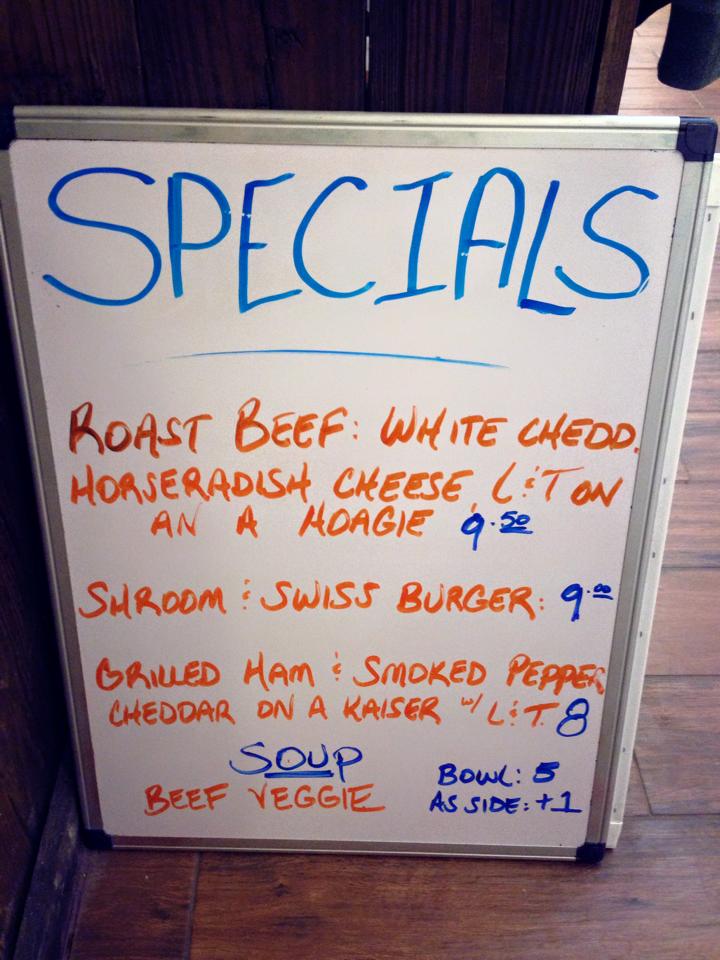 SPECIALS
ROAST BEEF: WHITE CHEDD.
HORSERADISH CHEESE, L & T ON
AN A HOAGIE 9.50
SHROOM & SWISS BURGER: 9.00
GRILLED HAM & SMOKED PEPPER
CHEDDAR ON A KAISER W/ L & T. 8
SOUP
BEEF VEGGIE
BOWL: 5
AS SIDE: +1